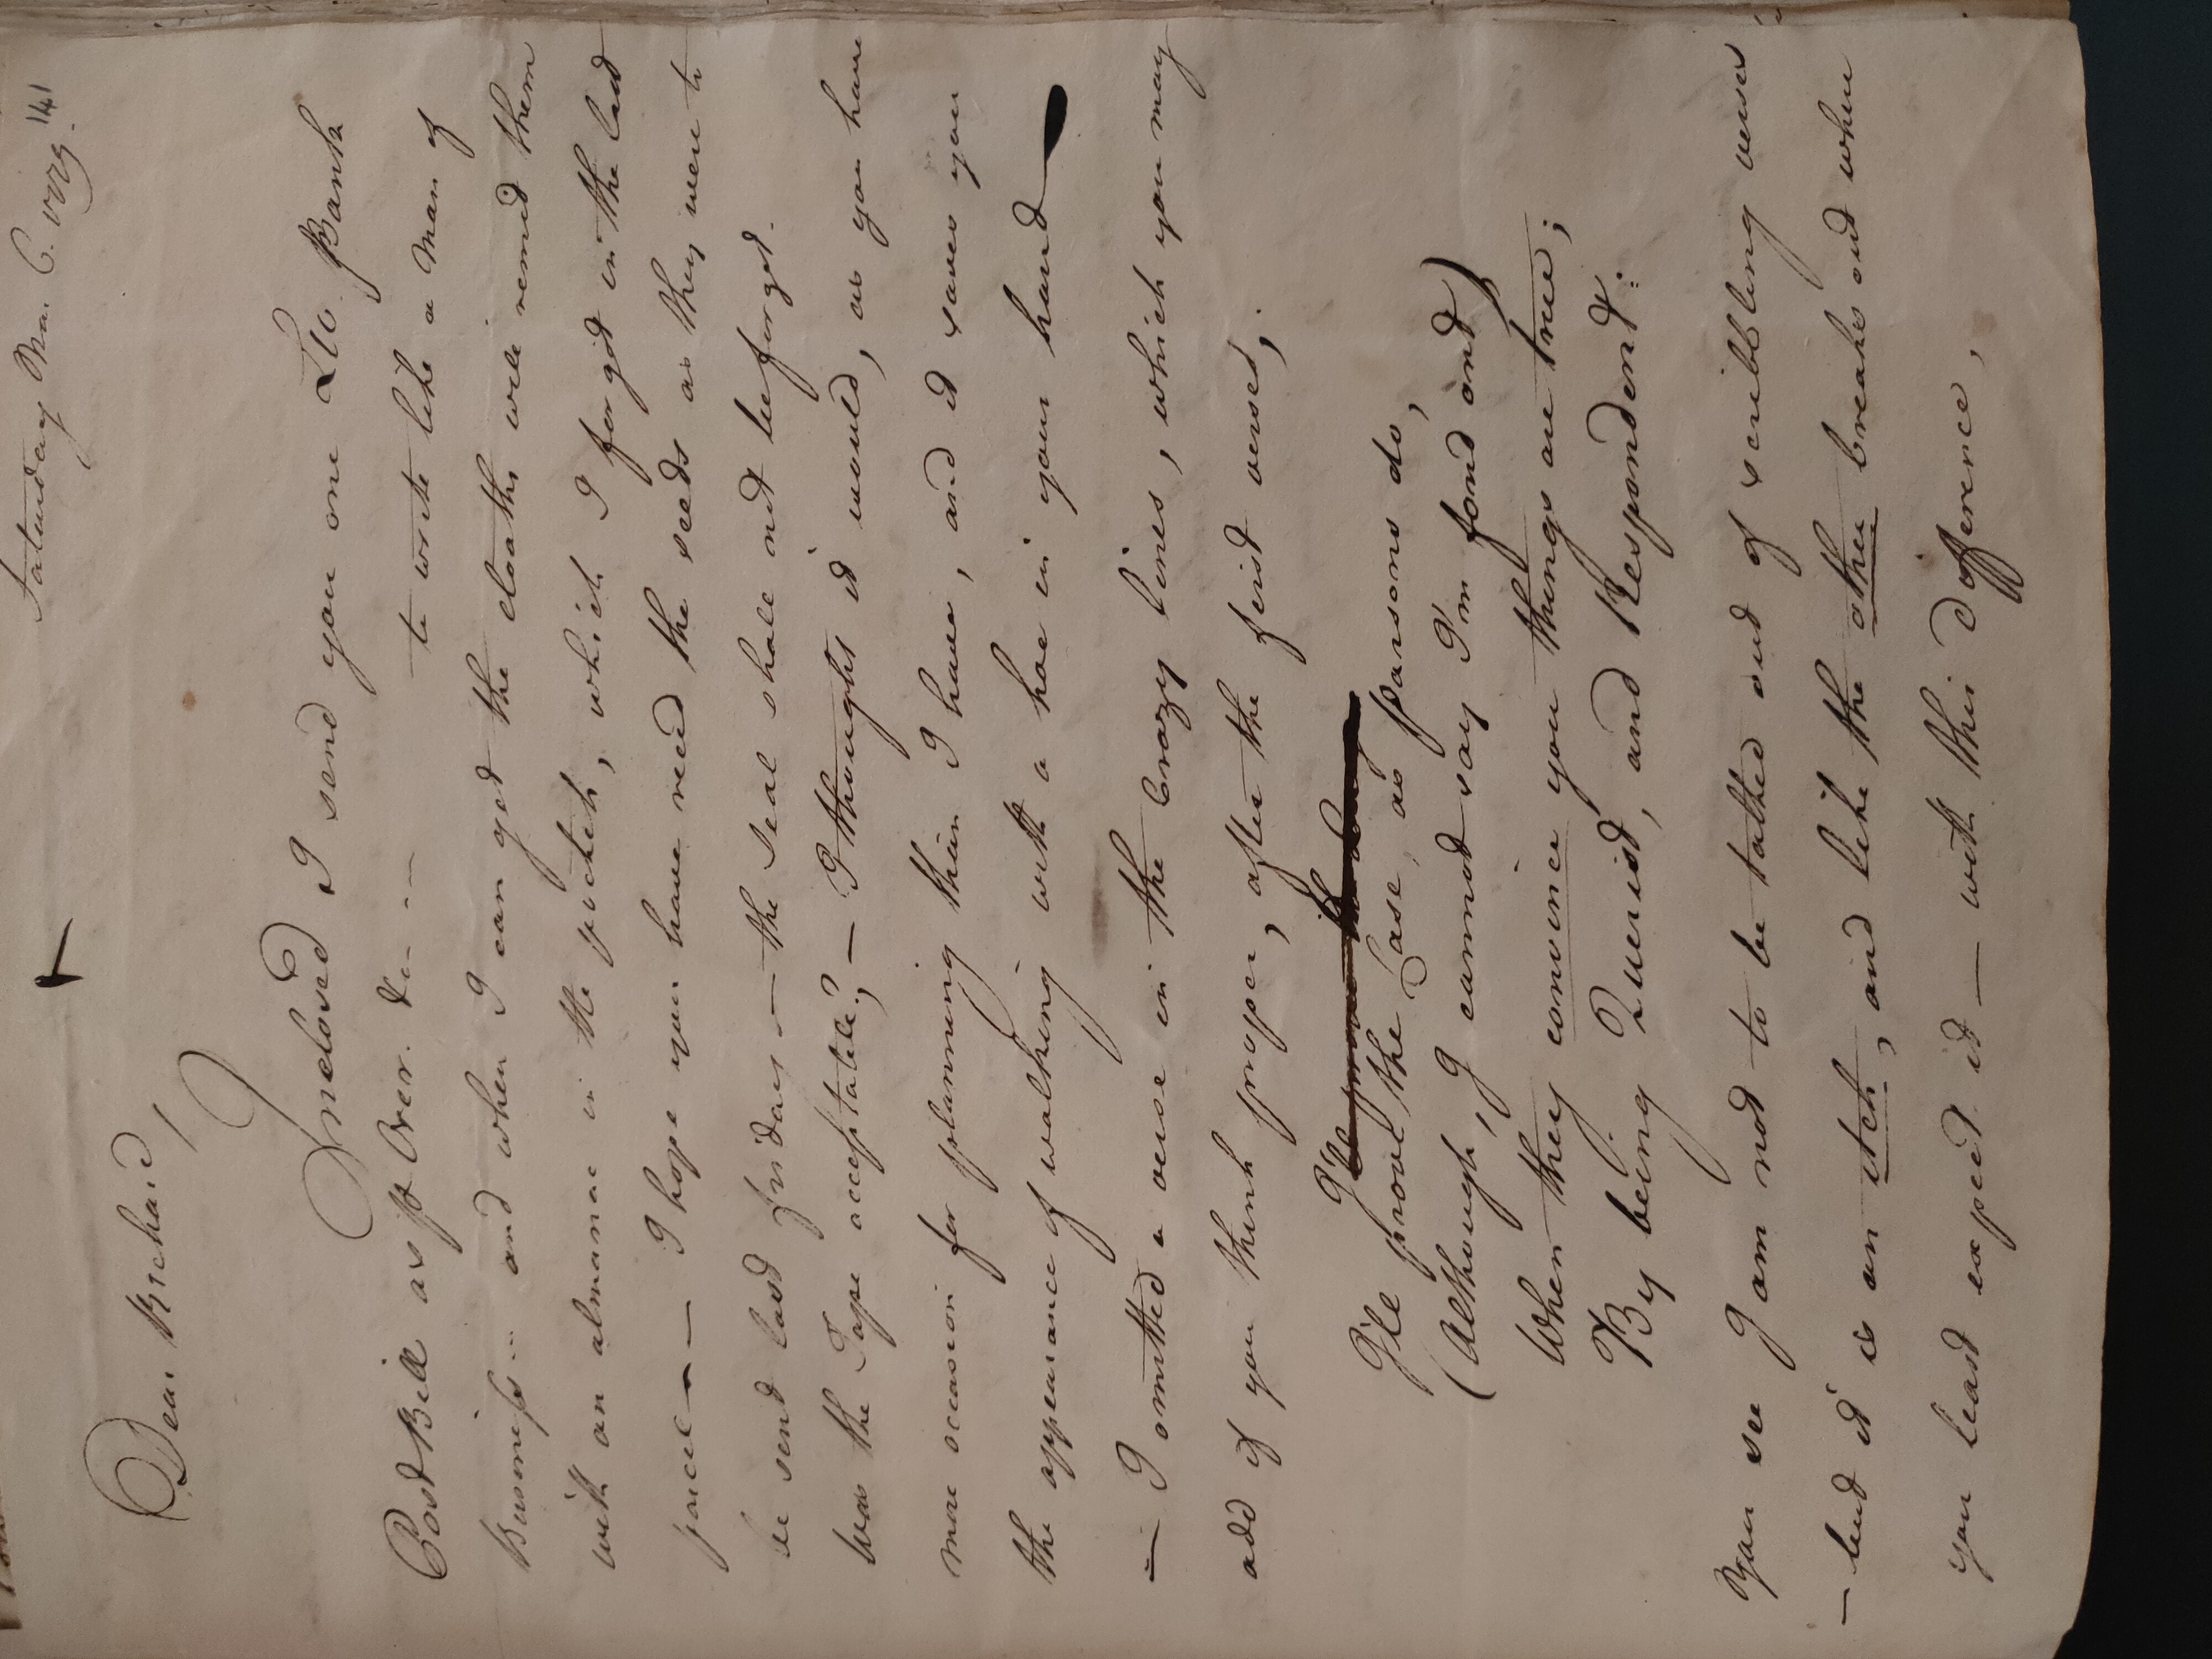 141
Saturday Mar. 6. 1773.
Dear Richard,
Inclosed I send you one £10. Bank
Post Bill as p Over. &c - - -
to write like a Man of
Business .. and when I can get the cloaths will remit them
with an almanac in the pocket, which I forgot in the last
parcel — I hope you have rec'd the seeds as they were to
be sent last friday — the Seal shall not be forgot.
Was the Tape acceptable? — I thought it would, as you have
more occasion for planning than I have, and it saves you
the appearance of walking with a hoe in your hand —
— I omitted a verse in the Crazy lines, which you may
add if you think proper, after the first verse,
I'le
I'le prove the Case, as parsons do,
(Although, I cannot say I'm fond on't)
When they convince you things are true;
By being Querist, and Respondent:
You see I am not to be talked out of scribbling verses
— but it is an itch, and like the other breaks out when
you least expect it — with this difference,